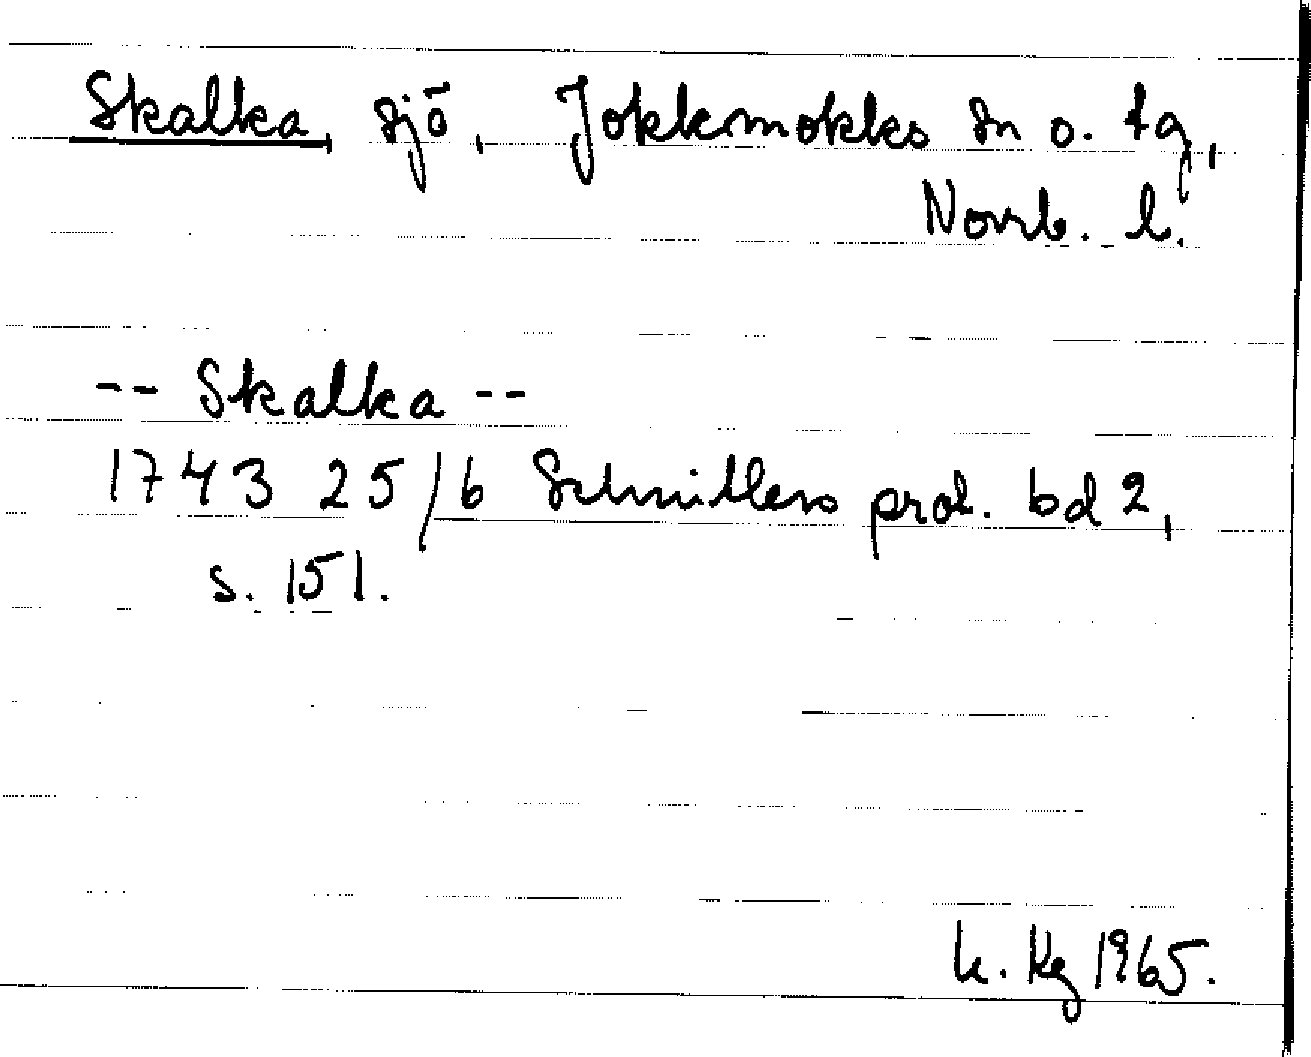 Skalka, sjö, Jokkmokks sn o. tg,
Norrb. l.
-- Skalka --
1743 25/6 Schnitlers prot. bd 2,
s. 151.
k. Kg 1965.